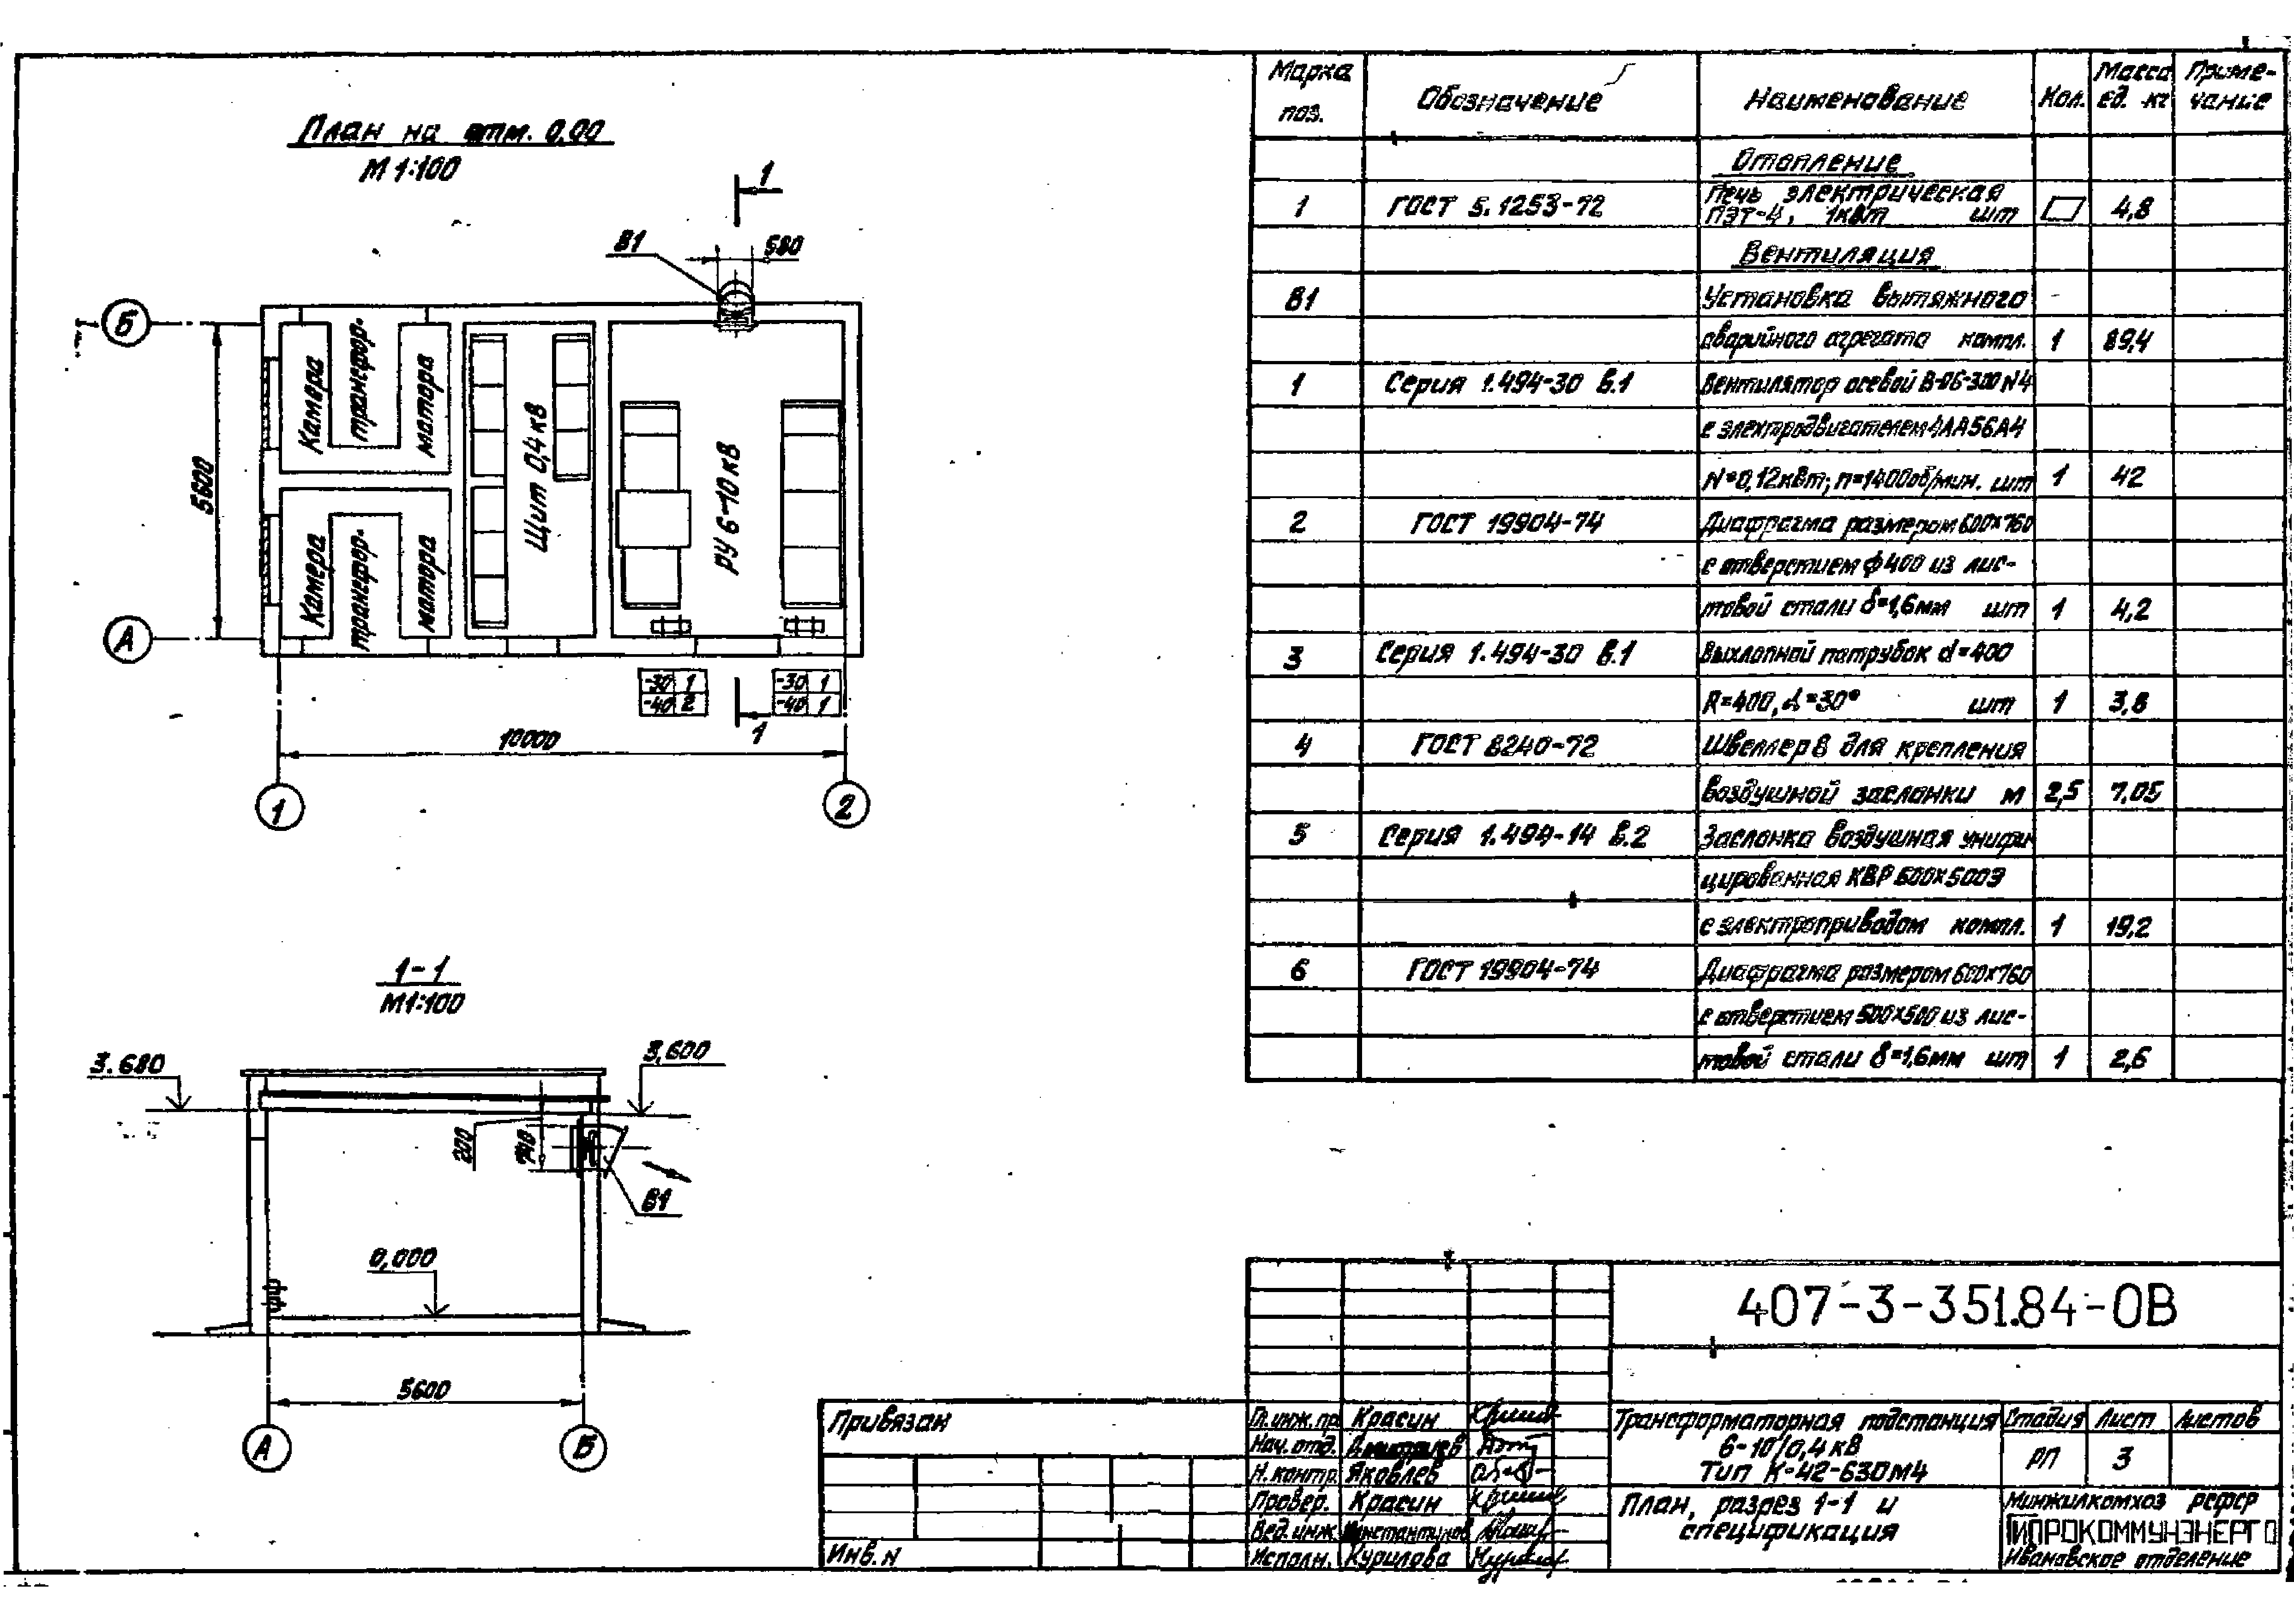 План на отм. 0,00
М 1:100
1
В1
580
Б
Камера
трансфор-
матора
Щит 0,4 кВ
РУ 6-10 кВ
5600
Камера
трансфор-
матора
А
-30 1
-40 2
-30 1
-40 1
1
10000
1
2
1-1
М1:100
3.680
3,600
200
В1
0,000
5600
А
Б
Марка поз. Обозначение Наименование Кол. Масса ед. кг Приме-чание
Отопление
1 ГОСТ 5.1253-72 Печь электрическая
ПЭТ-4, 1квт шт 4,8
Вентиляция
В1 Установка вытяжного
аварийного агрегата компл. 1 89,4
1 Серия 1.494-30 в.1 Вентилятор осевой В-06-300 N4
с электродвигателем 4АА56А4
N=0,12квт; n=1400об/мин. шт 1 42
2 ГОСТ 19904-74 Диафрагма размером 600х760
с отверстием ф400 из лис-
товой стали δ=1,6мм шт 1 4,2
3 Серия 1.494-30 в.1 Выхлопной патрубок d=400
R=400, α=30° шт 1 3,8
4 ГОСТ 8240-72 Швеллер 8 для крепления
воздушной заслонки м 2,5 7,05
5 Серия 1.494-14 в.2 Заслонка воздушная унифи
цированная КВР 600х500Э
с электроприводом компл. 1 19,2
6 ГОСТ 19904-74 Диафрагма размером 600х760
с отверстием 500х500 из лис-
товой стали δ=1,6мм шт 1 2,6
407-3-351.84-ОВ
Привязан
Инв. N
Гл.инж.пр. Красин
Нач. отд. Дмитриев
Н.контр. Яковлев
Провер. Красин
Вед.инж. Константинов
Исполн. Курилова
Трансформаторная подстанция
6-10/0,4 кВ
Тип К-42-630М4
Стадия Лист Листов
РП 3
План, разрез 1-1 и
спецификация
Минжилкомхоз РСФСР
ГИПРОКОММУНЭНЕРГО
Ивановское отделение